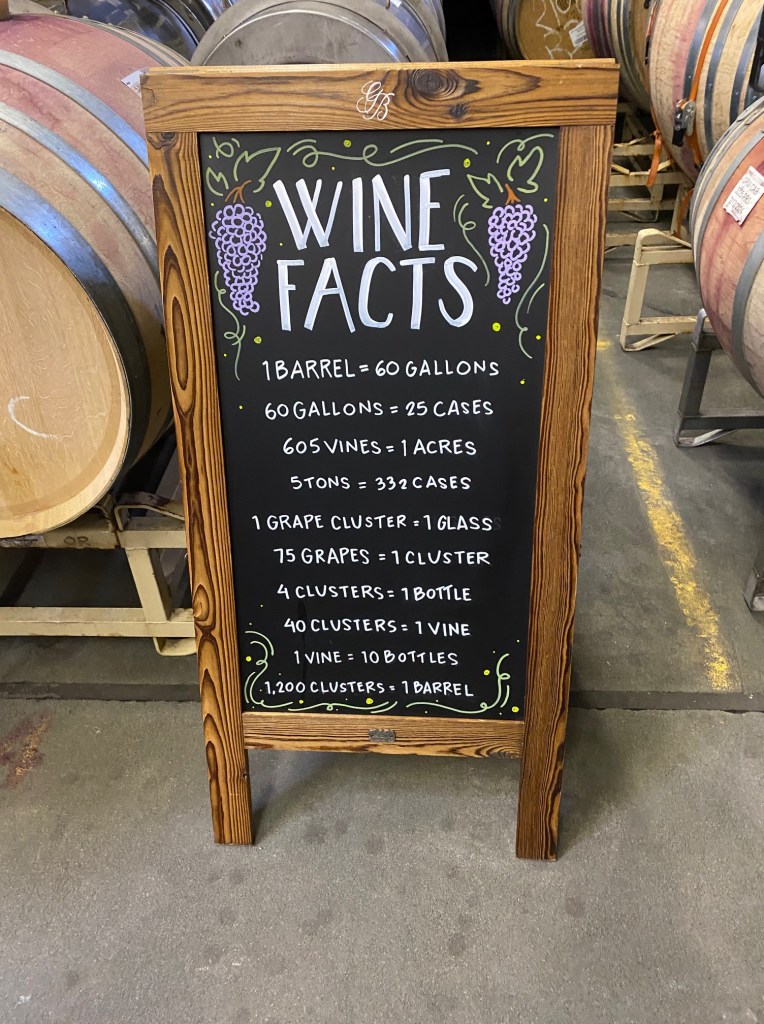 GB
WINE
FACTS
1 BARREL = 60 GALLONS
60 GALLONS = 25 CASES
605 VINES = 1 ACRES
5 TONS = 332 CASES
1 GRAPE CLUSTER = 1 GLASS
75 GRAPES = 1 CLUSTER
4 CLUSTERS = 1 BOTTLE
40 CLUSTERS = 1 VINE
1 VINE = 10 BOTTLES
1,200 CLUSTERS = 1 BARREL